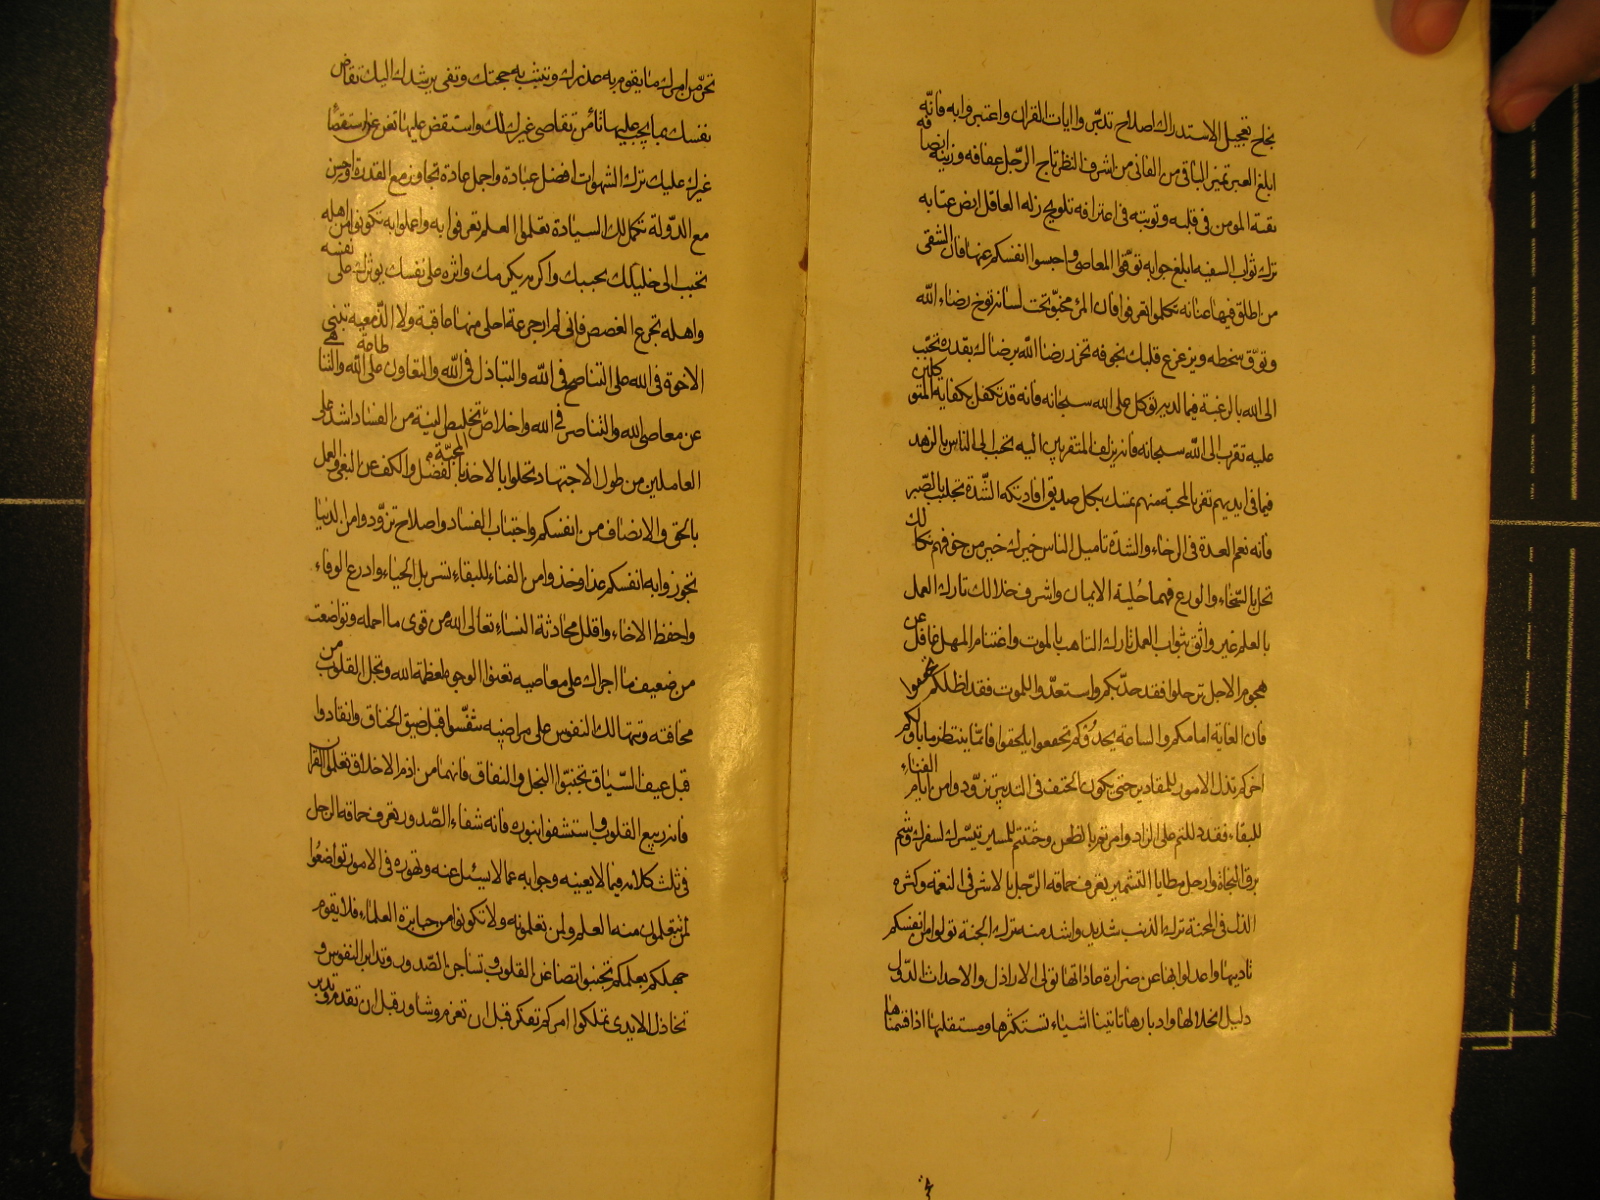 بخلج تعجيل الاستدراك اصلاح تدبروا ايات القران واعتبروا به فانه
ابلغ العبر تمييز الباقى من الفانى من اشرف النظر تاج الرّجل عفافه وزينته انصافه
ثقته المومن فى قلبه وتوبته فى اعترافه تلويح زلة العاقل امض عتابه
ترك جواب السفيه ابلغ جوابه توقّوا المعاصى واحبسوا انفسكم عنها فان الشقى
من اطلق فيها عنانه تكلموا تعرفوا فان المرء مخبوّ تحت لسانه توخ رضاء الله
وتوق سخطه ويزعزع قلبك بخوفه تحر رضا الله برضاك بقدره تحبب
الى الله بالرغبة فيما لديه توكل على الله سبحانه فانه قد تكفل بكفاية المتوكلين
عليه تقرب الى الله سبحانه فانه يزلف المتقربين اليه تحبب الى الناس بالزهد
فيما فى ايديهم تفز بالمحبة منهم تمسك بكل صديق افادتكه الشّدة تجلبب الصّبر
فانه نعم العدة فى الرخاء والشدّة تاميل الناس خيرك خير من خوفهم نكالك
تحل بالسّخاء والورع فهما حُلية الايمان واشرف خلالك تارك العمل
بالعلم غير واثق بثواب العمل تارك التاهب للموت واغتنام المهل غافل عن
هجوم الاجل ترحلوا فقد جدّ بكم واستعدّوا للموت فقد اظلكم تخففوا
فان الغاية امامكم والساعة يحدُوكم تخففوا تلحقوا فانما ينتظر باولكم
اخركم تذل الامور للمقادير حتى يكون الحتف فى التدبير تزوّدوا من ايام الفناء
للبقاء فقد دللتم على الزاد وامرتم بالظعن وحثثتم للمسير تيسّر لسفرك وشم
برق النجاة وارحل مطايا التشمير يعرف حماقة الرّجل بالاشر فى النعمة وكثرة
الذل فى المحنة ترك الذنب شديد واشد منه ترك الجنة تولوا من انفسكم
تاديبها واعدلوا بها عن ضراوة عاداتها تولى الاراذل والاحداث الدّول
دليل انحلالها وادبارها تاتينا اشياء نستكثرها ومستقلها اذا قمناها
تحرّ من امرك ما يقوم به عذرك وتثبت به حجتك وتفىء برشدك اليك تقاض
نفسك بما يجب عليها تامن تقاضى غيرك لك واستقص عليها تغن عن استقصاء
غيرك عليك ترك الشهوات افضل عبادة واجمل عادة تجاوز مع القدرة واحسن
مع الدّولة تكمل لك السيادة تعلموا العلم تعرفوا به واعملوا به تكونوا من اهله
تحبب الى خليلك يحببك واكرمه يكرمك واثره على نفسك يوثرك على نفسه
واهله تجرع الغصص فانى لم ار جرعة احلى منها عاقبة ولا الذّ مغبة تبتنى
الاخوة فى الله على التناصح فى الله والتباذل فى الله والتعاون على طاعة الله والتناهى
عن معاصى الله والتناصر فى الله واخلاص المحبّة تخليص النية من الفساد اشد على
العاملين من طول الاجتهاد تحلوا بالاخذ بالفضل والكف عن البغى والعمل
بالحق والانصاف من انفسكم واجتناب الفساد واصلاح تزوّدوا من الدنيا
تحوزوا به انفسكم غدا وخذوا من الفناء للبقاء تسربل الحياء وادرع الوفاء
واحفظ الاخاء واقلل محادثة النساء تعالى الله من قوى ما احمله وتواضعت
من ضعيف ما اجراك على معاصيه تعنوا الوجوه لعظمة الله وتجل القلوب من
مخافته وتتهالك النفوس على مراضيه تنفّسوا قبل ضيق الخناق وانقادوا
قبل عنف السّياق تجنبوا البخل والنفاق فانهما من اذم الاخلاق تعلموا القران
فانه ربيع القلوب واستشفوا بنوره فانه شفاء الصّدور تعرف حماقة الرجل
فى ثلث كلامه فيما لا يعنيه وجوابه عما لا يسئل عنه وتهوره فى الامور تواضعُوا
لمن تتعلمون منه العلم ولمن تعلمونه ولا تكونوا من جبابرة العلماء فلا يقوم
جهلكم بعلمكم تجنبوا تضاغن القلوب وتشاحن الصّدور وتدابر النفوس و
تخاذل الايدى تملكوا امركم تفكر قبل ان تعزم وشاور قبل ان تقدم وتدبر